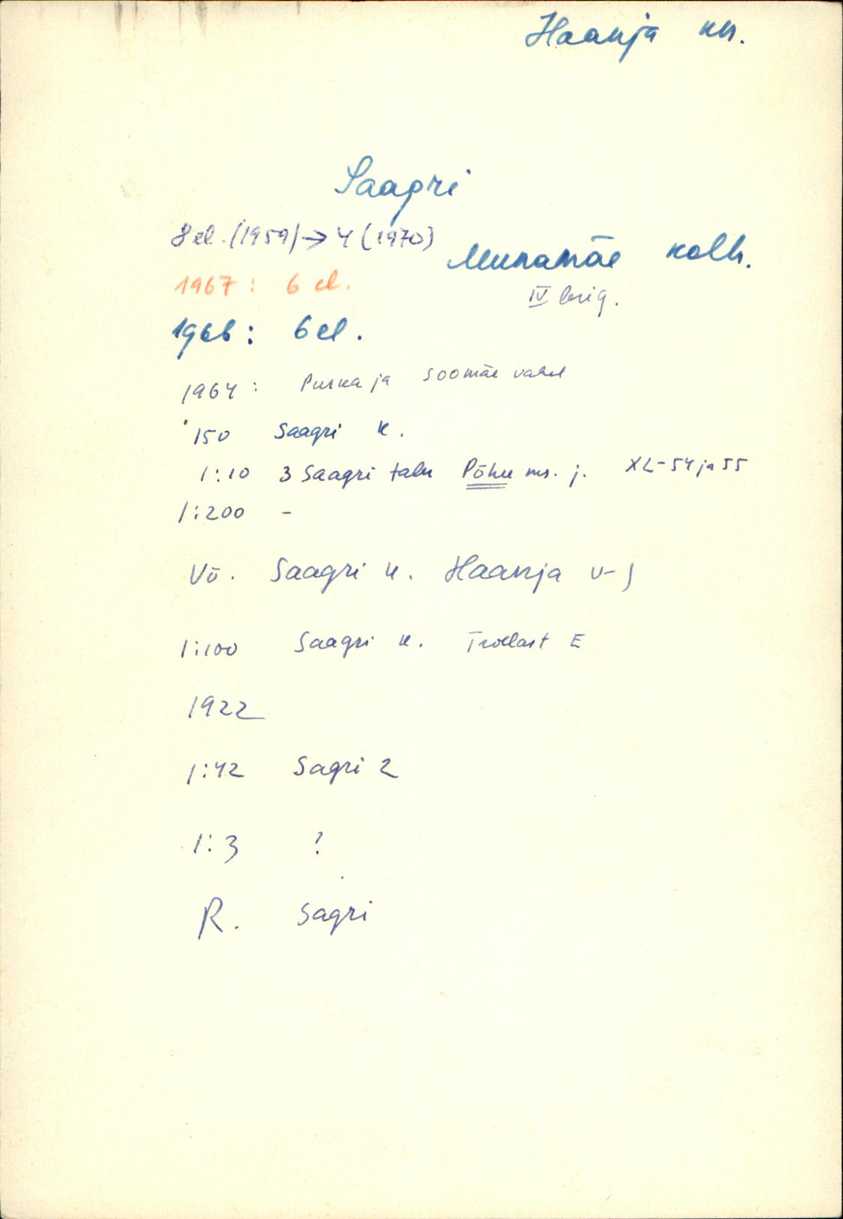 Haanja kn.
Saagri
8 el. (1959) → 4 (1970)
Munamäe kolh.
1967: 6 el.
IV brig.
1966: 6 el.
1964: Puska ja Soomäe vahel
150 Saagri k.
1:10 3 Saagri talu Põhu ms. j. XL-54 ja 55
1:200 -
Võ. Saagri k. Haanja v-j
1:100 Saagri k. E
1922
1:42 Sagri 2
1:3 ?
R. Sagri